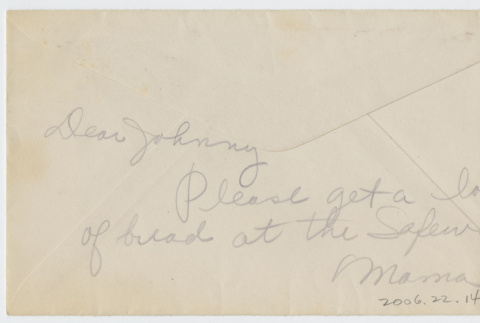 Dear Johnny
Please get a lo
of bread at the Safew
Mama
2006.22.14